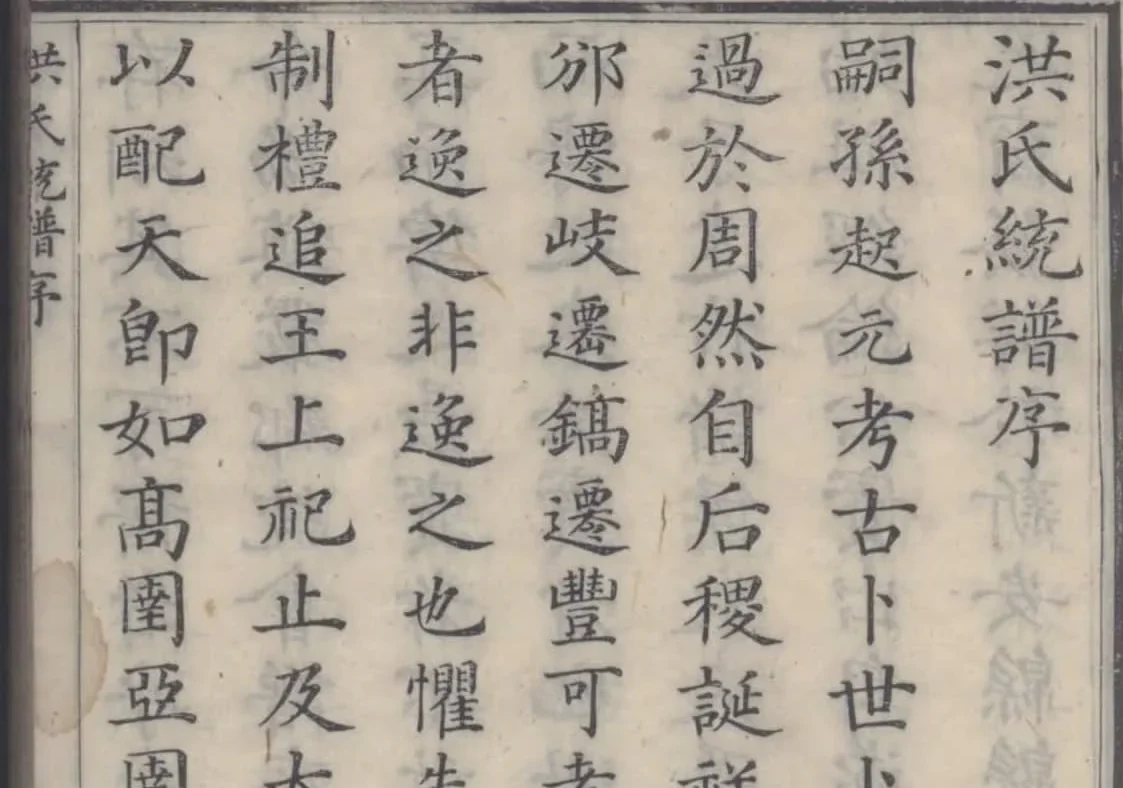 洪氏統譜序
嗣孫起元考古卜世卜
過於周然自后稷誕祥
邠遷岐遷鎬遷豐可考
者逸之非逸之也懼失
制禮追王上祀止及大
以配天即如高圉亞圉
洪氏統譜序